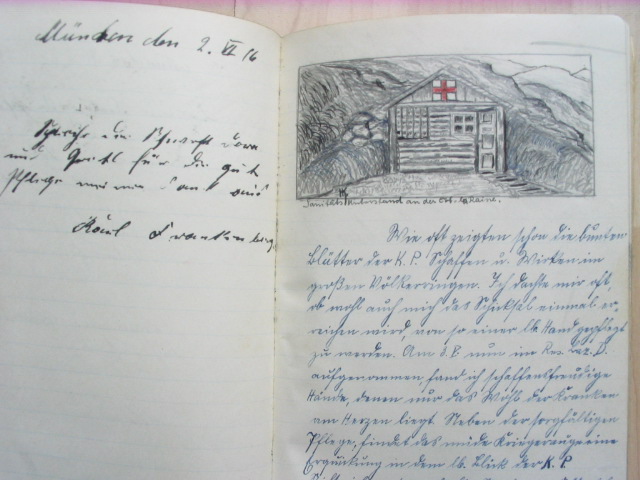 München den 2. VI 16
Spreche den Schwestern Dora
und Gretl für die gute
Pflege meinen Dank aus
Karl Frankenberg
Sanitäts Unterstand an der Cote Loraine.
Wie oft zeigten schon die bunten
Blätter der K. P. Schaffen u. Wirken im
großen Völkerringen. Ich dachte mir oft,
ob wohl auch mich das Schicksal einmal er-
reichen wird, von so einer lb. Hand gepflegt
zu werden. Am 3.6 nun im Res. Laz. D.
aufgenommen, fand ich schaffensfreudige
Hände, denen nur das Wohl der Kranken
am Herzen liegt. Neben der sorgfältigen
Pflege, findet das müde Kriegerauge eine
Erquickung in dem lb. Blick der K. P.